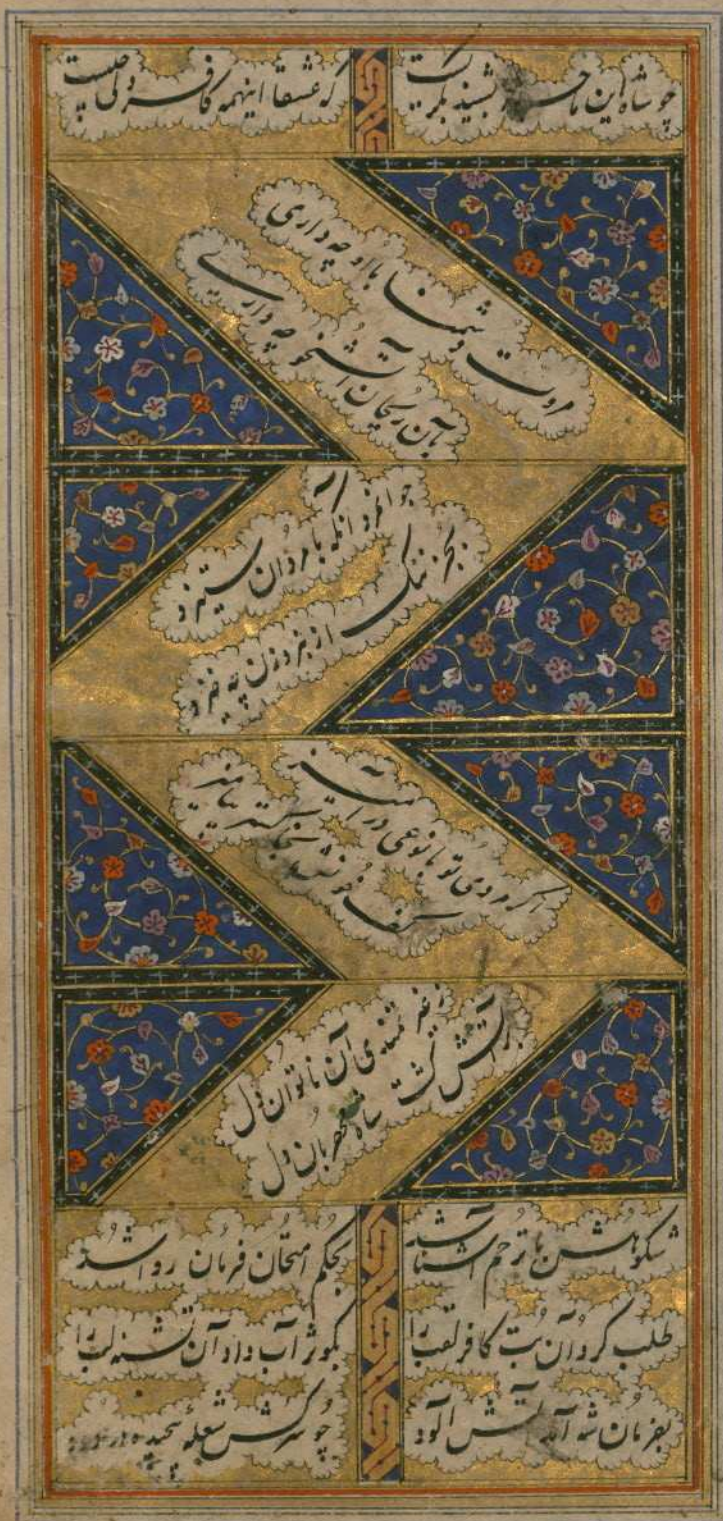 چو شاه این ماجرا بشنید بگریست
که عشقا اینهمه کافر دلی چیست
مروت دشمنا با او چه داری
بآن ریحان آتشخو چه داری
جوانمرد آنکه با مردان ستیزد
بجز ننگ از نبرد زن چه خیزد
اگر مردی تو با نوعی در آمیز
کف خونش بخاکستر بیامیز
آن ناتوان دل
آتش گشت شاه مهربان دل
شکوهش با ترحم آشنا شد
بحکم امتحان فرمان روا شد
طلب کرد آن بت کافر لقب را
بکوثر آب داد آن تشنه لب را
بفرمان شه آمد آتش آلود
چو سرکش شعله پیچیده در دود